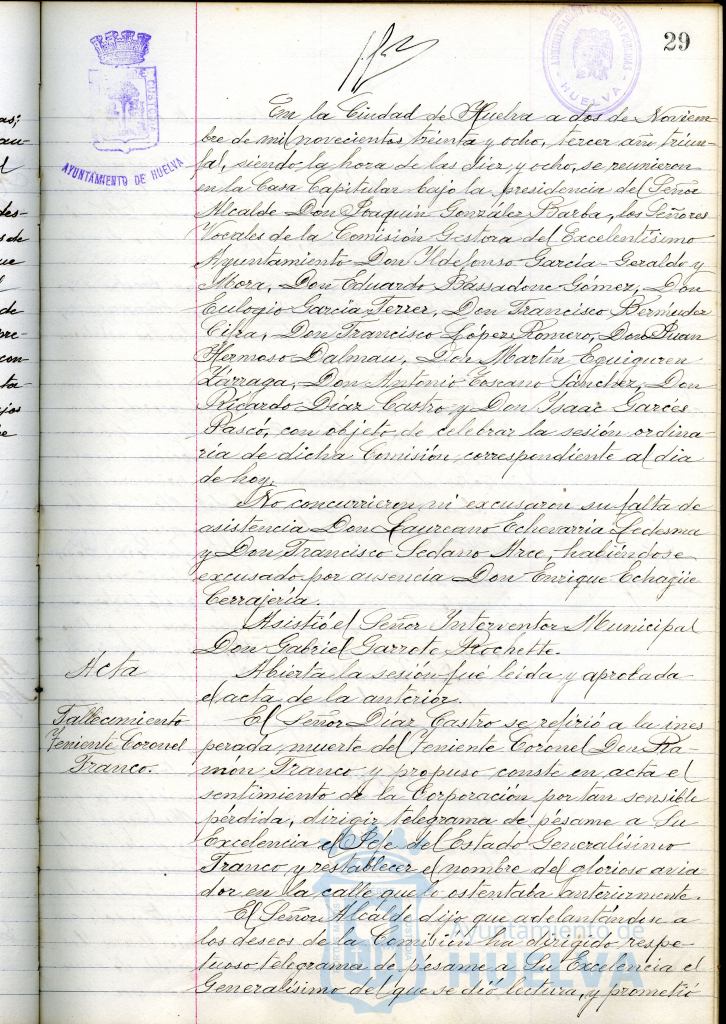 29
AYUNTAMIENTO DE HUELVA
HUELVA
En la Ciudad de Huelva a dos de Noviem-
bre de mil novecientos treinta y ocho, tercer año triun-
fal, siendo la hora de las diez y ocho, se reunieron
en la Casa Capitular bajo la presidencia del Señor
Alcalde Don Joaquín González Barba, los Señores
Vocales de la Comisión Gestora del Excelentísimo
Ayuntamiento Don Ildefonso García-Geraldo y
Mora, Don Eduardo Bassadone Gómez, Don
Eulogio García Ferrer, Don Francisco Bermúdez
Cifra, Don Francisco López Romero, Don Juan
Hermoso Dalmau, Don Martín Eguiguren
Lárraga, Don Antonio Toscano Sánchez, Don
Ricardo Díaz Castro y Don Isaac Garcés
Pascó, con objeto de celebrar la sesión ordina-
ria de dicha Comisión, correspondiente al día
de hoy.
No concurrieron ni excusaron su falta de
asistencia Don Laureano Echevarría Ledesma
y Don Francisco Sedano Arce, habiéndose
excusado por ausencia Don Enrique Echagüe
Cerrajería.
Asistió el Señor Interventor Municipal
Don Gabriel Garrote Rochette.
Acta
Abierta la sesión fué leída y aprobada
el acta de la anterior.
Fallecimiento
Teniente Coronel
Franco.
El Señor Díaz Castro se refirió a la ines
perada muerte del Teniente Coronel Don Ra-
món Franco y propuso conste en acta el
sentimiento de la Corporación por tan sensible
pérdida, dirigir telegrama de pésame a Su
Excelencia el Jefe del Estado Generalísimo
Franco y restablecer el nombre del glorioso avia
dor en la calle que lo ostentaba anteriormente.
El Señor Alcalde dijo que adelantándose a
los deseos de la Comisión ha dirigido respe-
tuoso telegrama de pésame a Su Excelencia el
Generalísimo del que se dió lectura, y prometió
Ayuntamiento de
HUELVA